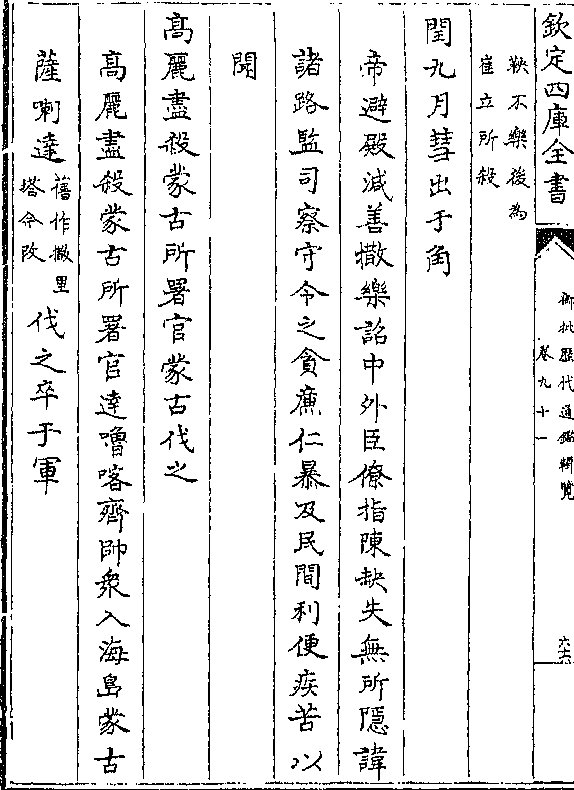 欽定四庫全書
御批歷代通鑑輯覽
卷九十一
六六
鞅不樂後為
崔立所殺
閏九月彗出于角
帝避殿減善撤樂詔中外臣僚指陳缺失無所隱諱
諸路監司察守令之貪亷仁暴及民間利便疾苦以
聞
髙麗盡殺蒙古所署官蒙古伐之
髙麗盡殺蒙古所署官達嚕喀齊帥衆入海島蒙古
薩喇達舊作撒里
塔今改
伐之卒于軍